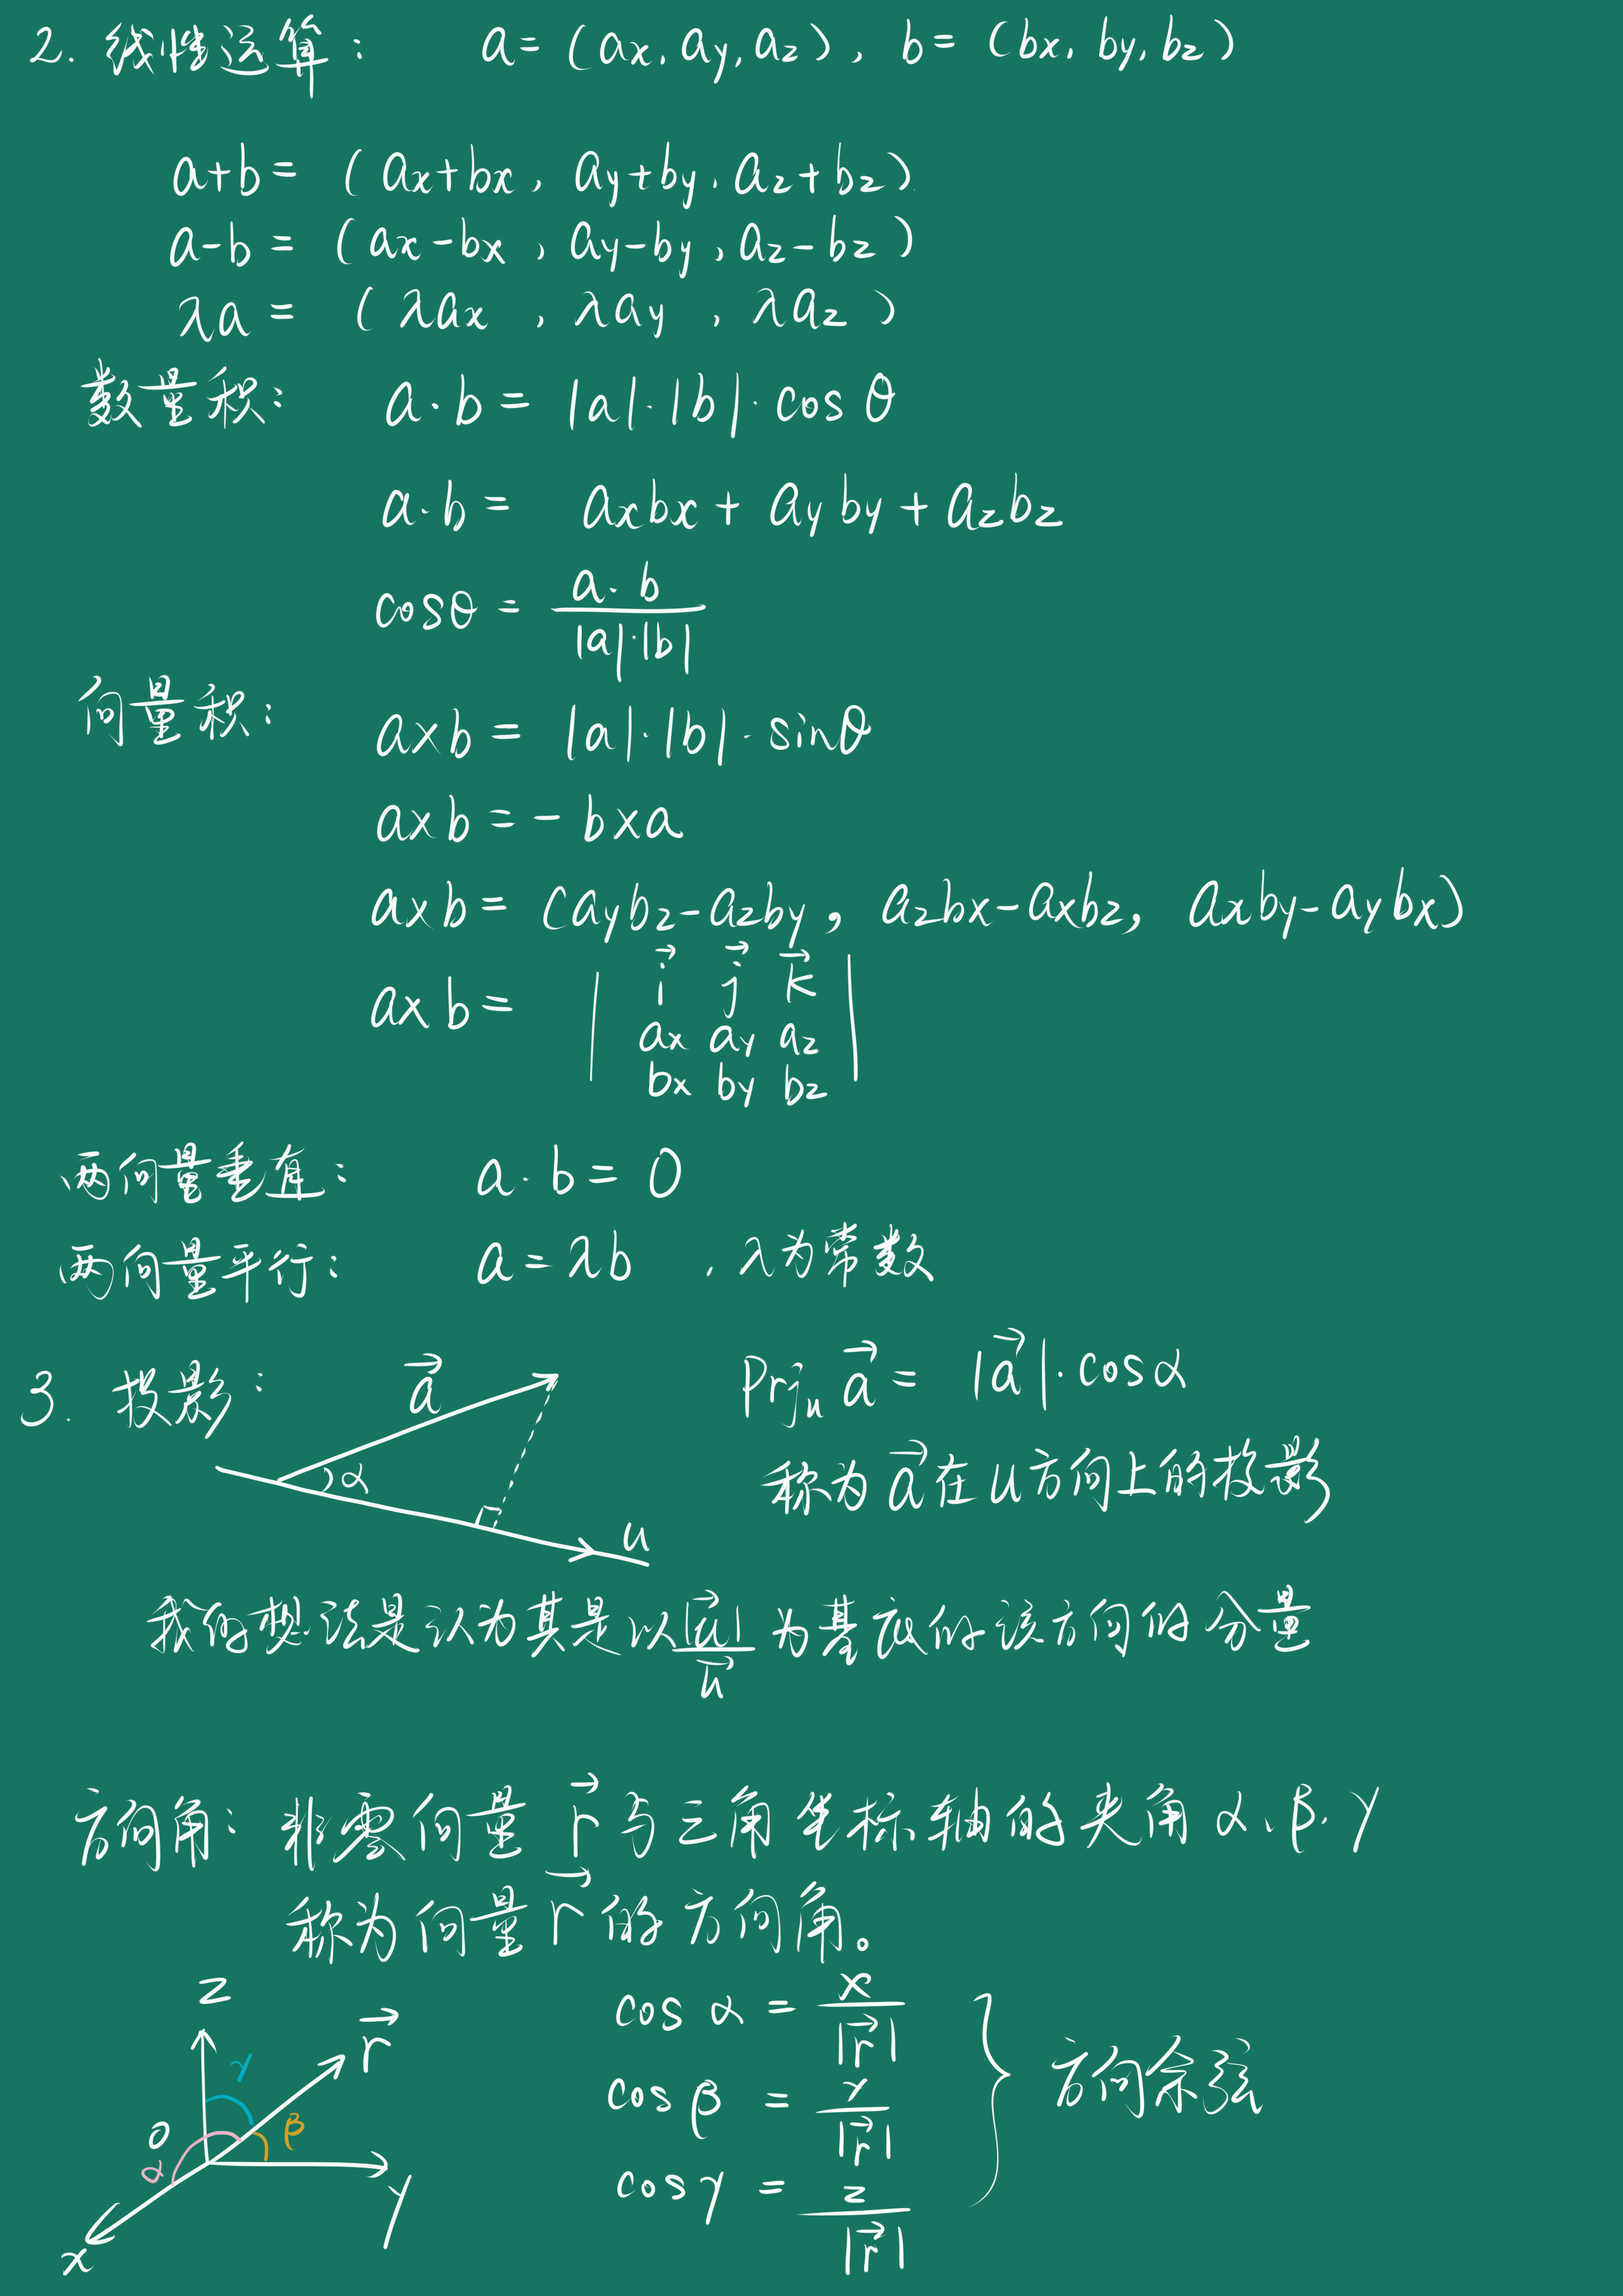 2. 线性运算: a=(ax,ay,az), b=(bx,by,bz)
a+b= (ax+bx, ay+by, az+bz)
a-b= (ax-bx, ay-by, az-bz)
λa= (λax, λay, λaz)
数量积: a·b= |a|·|b|·cosθ
a·b= axbx+ayby+azbz
cosθ= a·b
|a|·|b|
向量积: a×b= |a|·|b|·sinθ
a×b=-b×a
a×b= (aybz-azby, azbx-axbz, axby-aybx)
a×b= | i⃗ j⃗ k⃗ |
ax ay az
bx by bz
两向量垂直: a·b=0
两向量平行: a=λb ,λ为常数
3. 投影: a⃗ Prjᵤa⃗= |a⃗|·cosα
α 称为a⃗在u方向上的投影
u
我的想法是认为其是以|u⃗|/u⃗为基底的该方向的分量
方向角: 非零向量r⃗与三角坐标轴的夹角α、β、γ
称为向量r⃗的方向角。
z r⃗ γ β α O y x
cosα= x/|r⃗|
cosβ= y/|r⃗| } 方向余弦
cosγ= z/|r⃗|